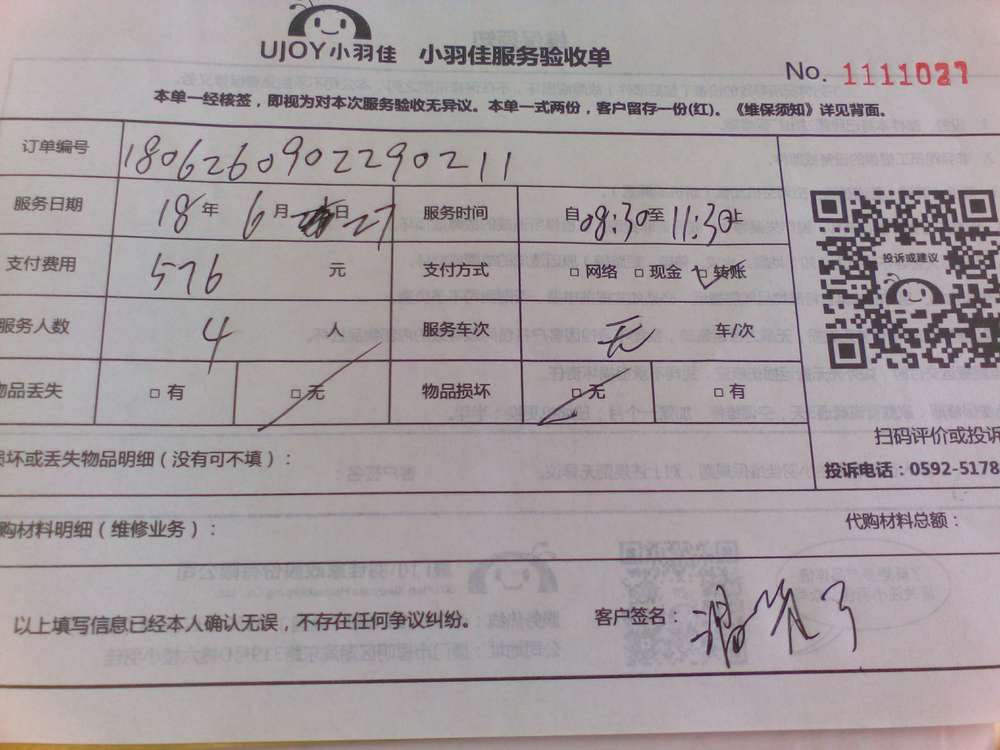 UJOY小羽佳 小羽佳服务验收单
No. 1111027
本单一经核签，即视为对本次服务验收无异议。本单一式两份，客户留存一份(红)。《维保须知》详见背面。
订单编号 1806260902290211
服务日期 18年 6月 27日 服务时间 自08:30至11:30止
支付费用 576 元 支付方式 □网络 □现金 □转账
投诉或建议
服务人数 4 人 服务车次 无 车/次
物品丢失 □有 □无 物品损坏 □无 □有
扫码评价或投诉
损坏或丢失物品明细（没有可不填）：
投诉电话：0592-5178
购材料明细（维修业务）：
代购材料总额：
以上填写信息已经本人确认无误，不存在任何争议纠纷。 客户签名：